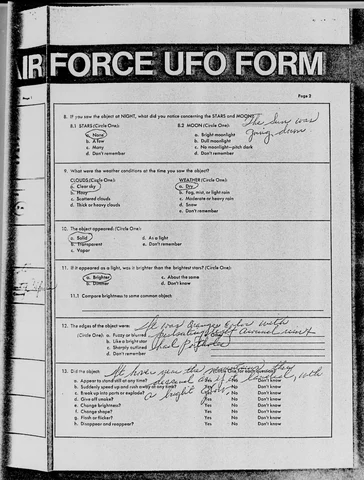 AIR FORCE UFO FORM
Page 2
8. If you saw the object at NIGHT, what did you notice concerning the STARS and MOON?
8.1 STARS (Circle One): 8.2 MOON (Circle One): The Sun was
a. None a. Bright moonlight going down
b. A few b. Dull moonlight
c. Many c. No moonlight—pitch dark
d. Don't remember d. Don't remember
9. What were the weather conditions at the time you saw the object?
CLOUDS (Circle One): WEATHER (Circle One):
a. Clear sky a. Dry
b. Hazy b. Fog, mist, or light rain
c. Scattered clouds c. Moderate or heavy rain
d. Thick or heavy clouds d. Snow
e. Don't remember
10. The object appeared: (Circle One):
a. Solid d. As a light
b. Transparent e. Don't remember
c. Vapor
11. If it appeared as a light, was it brighter than the brightest stars? (Circle One):
a. Brighter c. About the same
b. Dimmer d. Don't know
11.1 Compare brightness to some common object:
12. The edges of the object were: It was Orange Color with
(Circle One): a. Fuzzy or blurred light around
b. Like a bright star
c. Sharply outlined
d. Don't remember
13. Did the object: It over the mountain
(Circle One for each question)
a. Appear to stand still at any time? Don't know
b. Suddenly speed up and rush away at any time? with Don't know
c. Break up into parts or explode? a bright Don't know
d. Give off smoke? Yes No Don't know
e. Change brightness? Yes No Don't know
f. Change shape? Yes No Don't know
g. Flash or flicker? Yes No Don't know
h. Disappear and reappear? Yes No Don't know